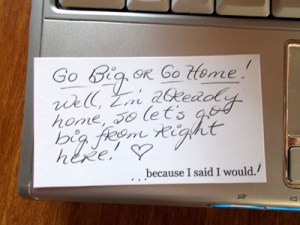 Go Big or Go Home!
Well, I'm already
home, so let's go
big from right
here! ♡
...because I said I would.!